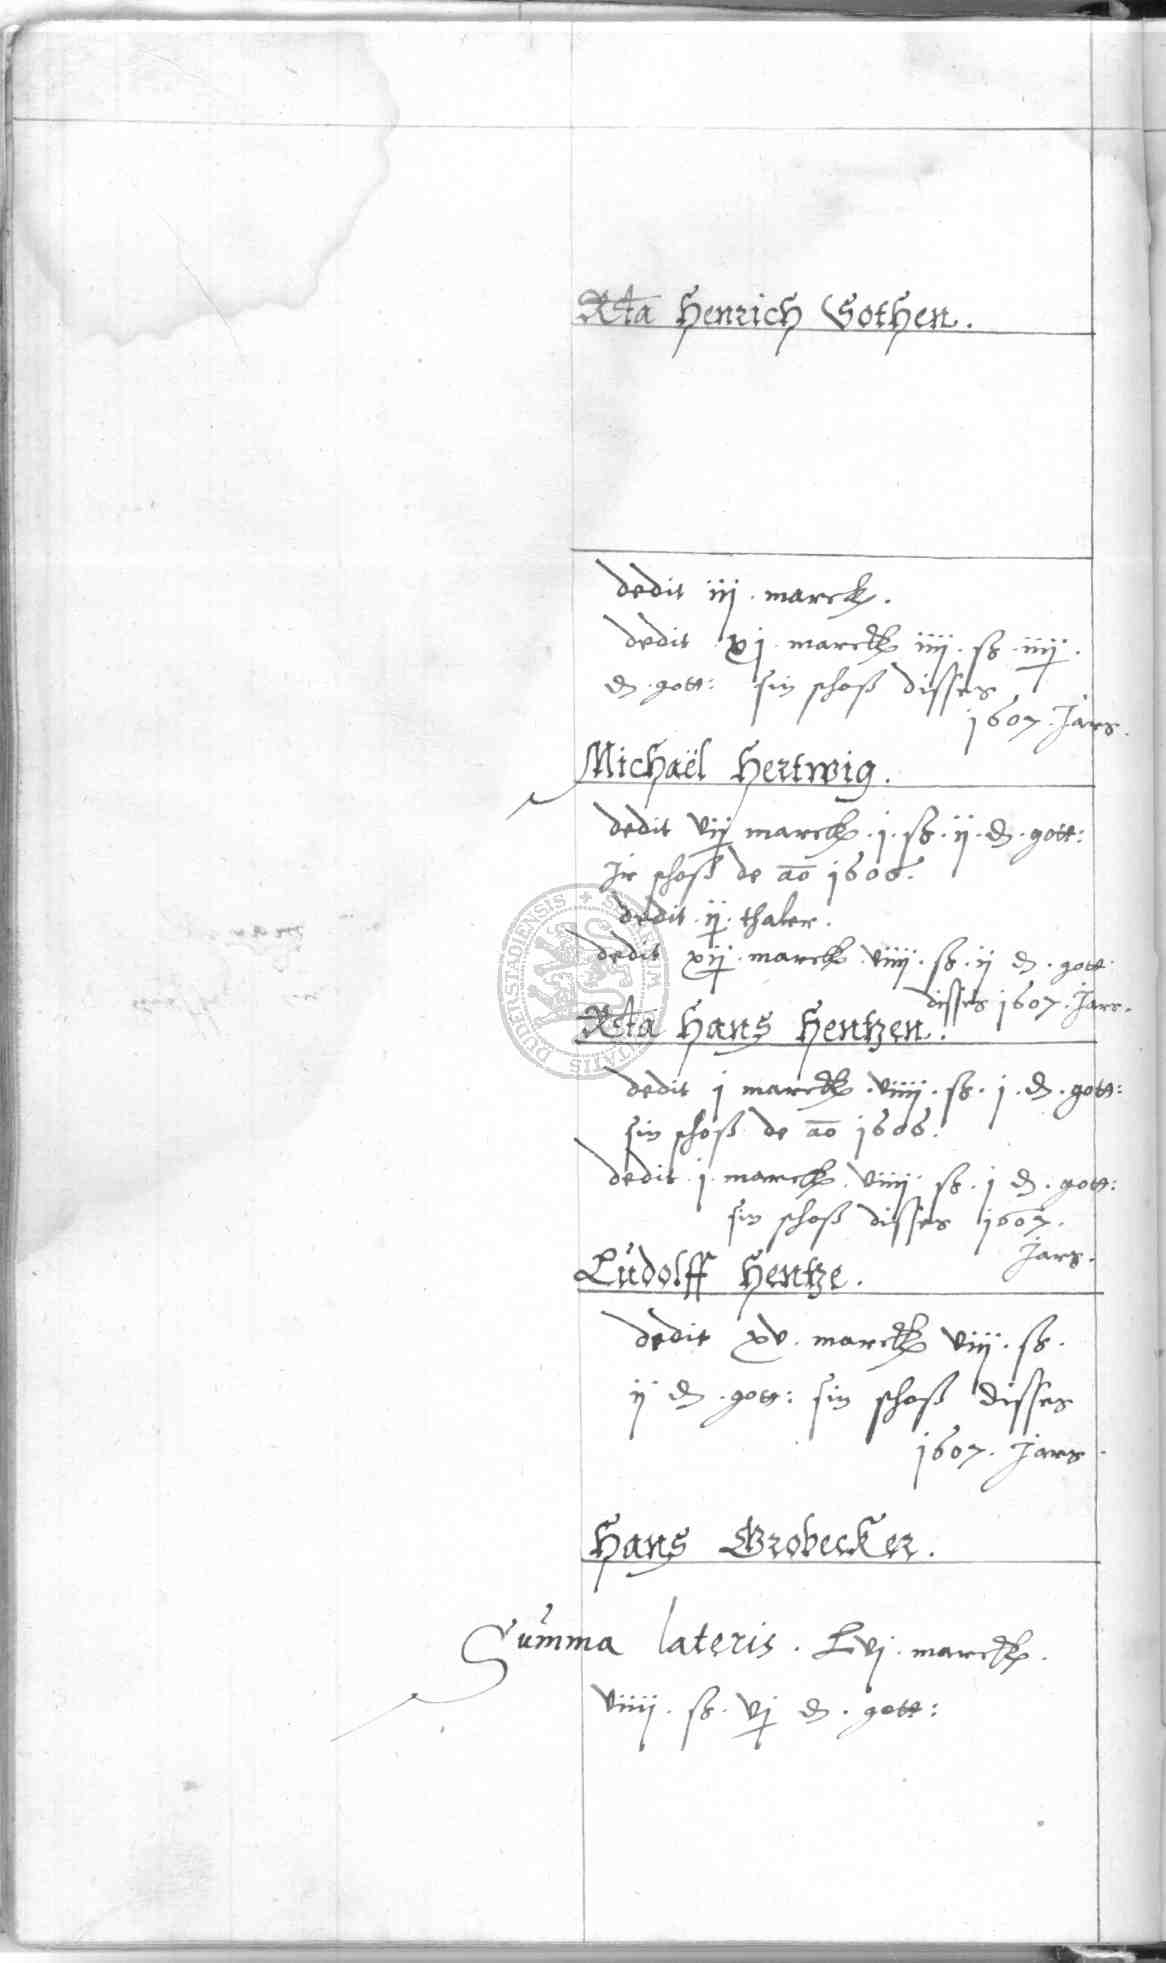 Rcta Henrich Gothen.
dedit iij. marck.
dedit xj. marck iiij. ß. iiij.
d. gott: sin schoß disses
1607. Jars.
Michaël Hertwig.
dedit vij marck. j. ß. ij. d. gott:
Jr schoß de ao 1606.
dedit ij. thaler.
dedit xij. marck viiij. ß. ij d. gott
disses 1607. Jars.
Rcta Hans Hentzen.
dedit j marck. viiij. ß. j. d. gott:
sin schoß de ao 1606.
dedit j. marck. viiij. ß. j d. gott:
sin schoß disses 1607.
Jars.
Ludolff Hentze.
dedit xv. marck viij. ß.
ij d. gott: sin schoß disses
1607. Jars.
Hans Grobecker.
Summa lateris. Lvj. marck.
viiij. ß. vj d. gott:
DUDERSTADIENSIS